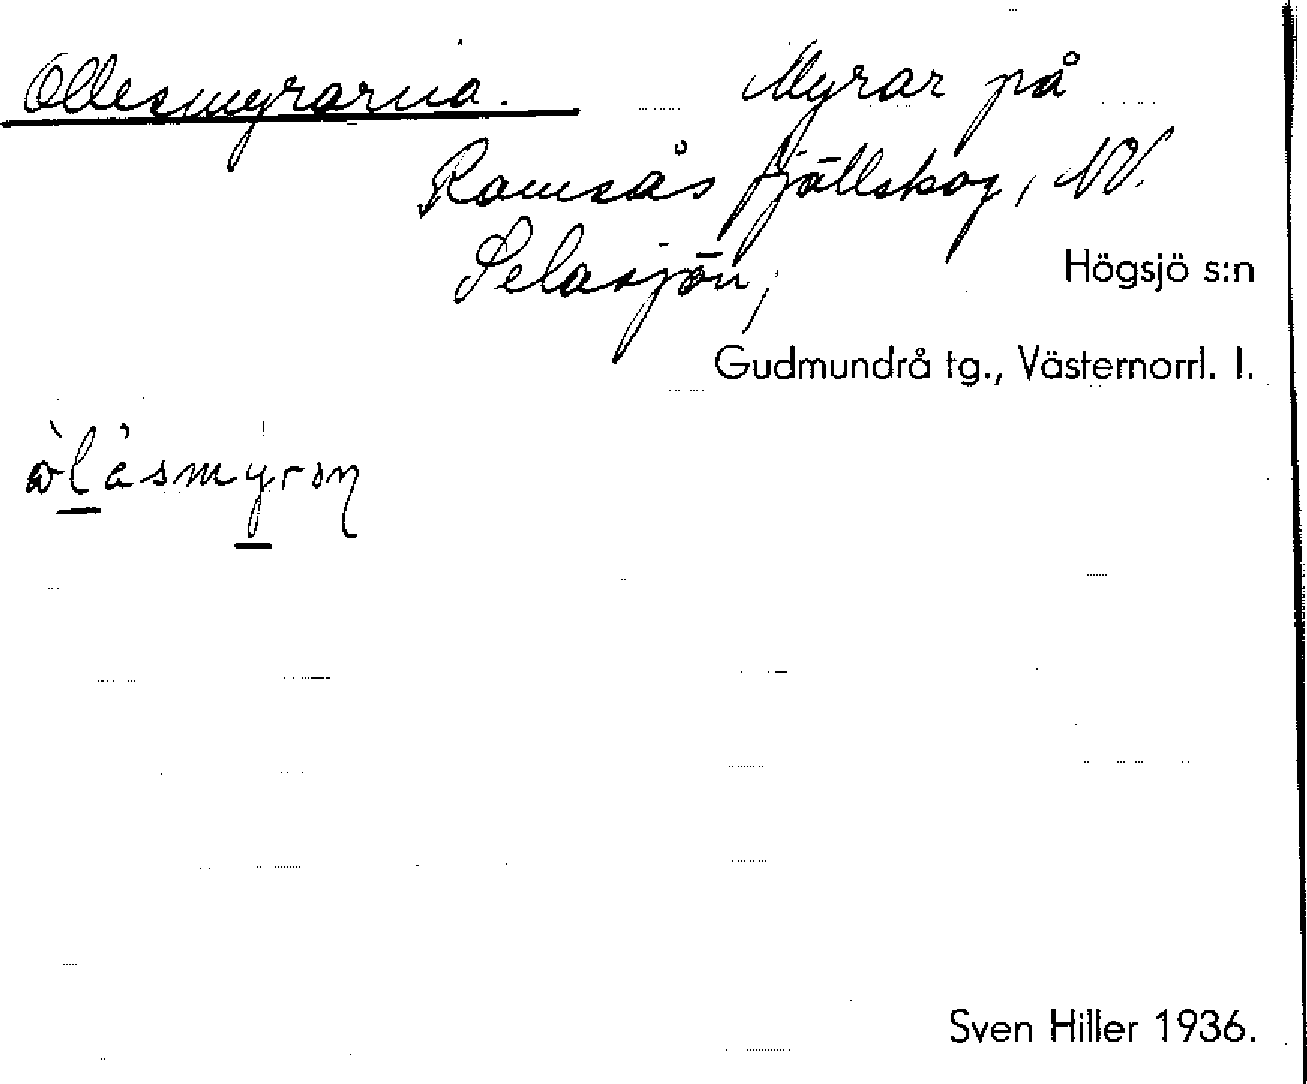 Ollesmyrarna. Myrar på
Ramsås fjällskog, NV.
Selasjön,
Högsjö s:n
Gudmundrå tg., Västernorrl. l.
Sven Hiller 1936.